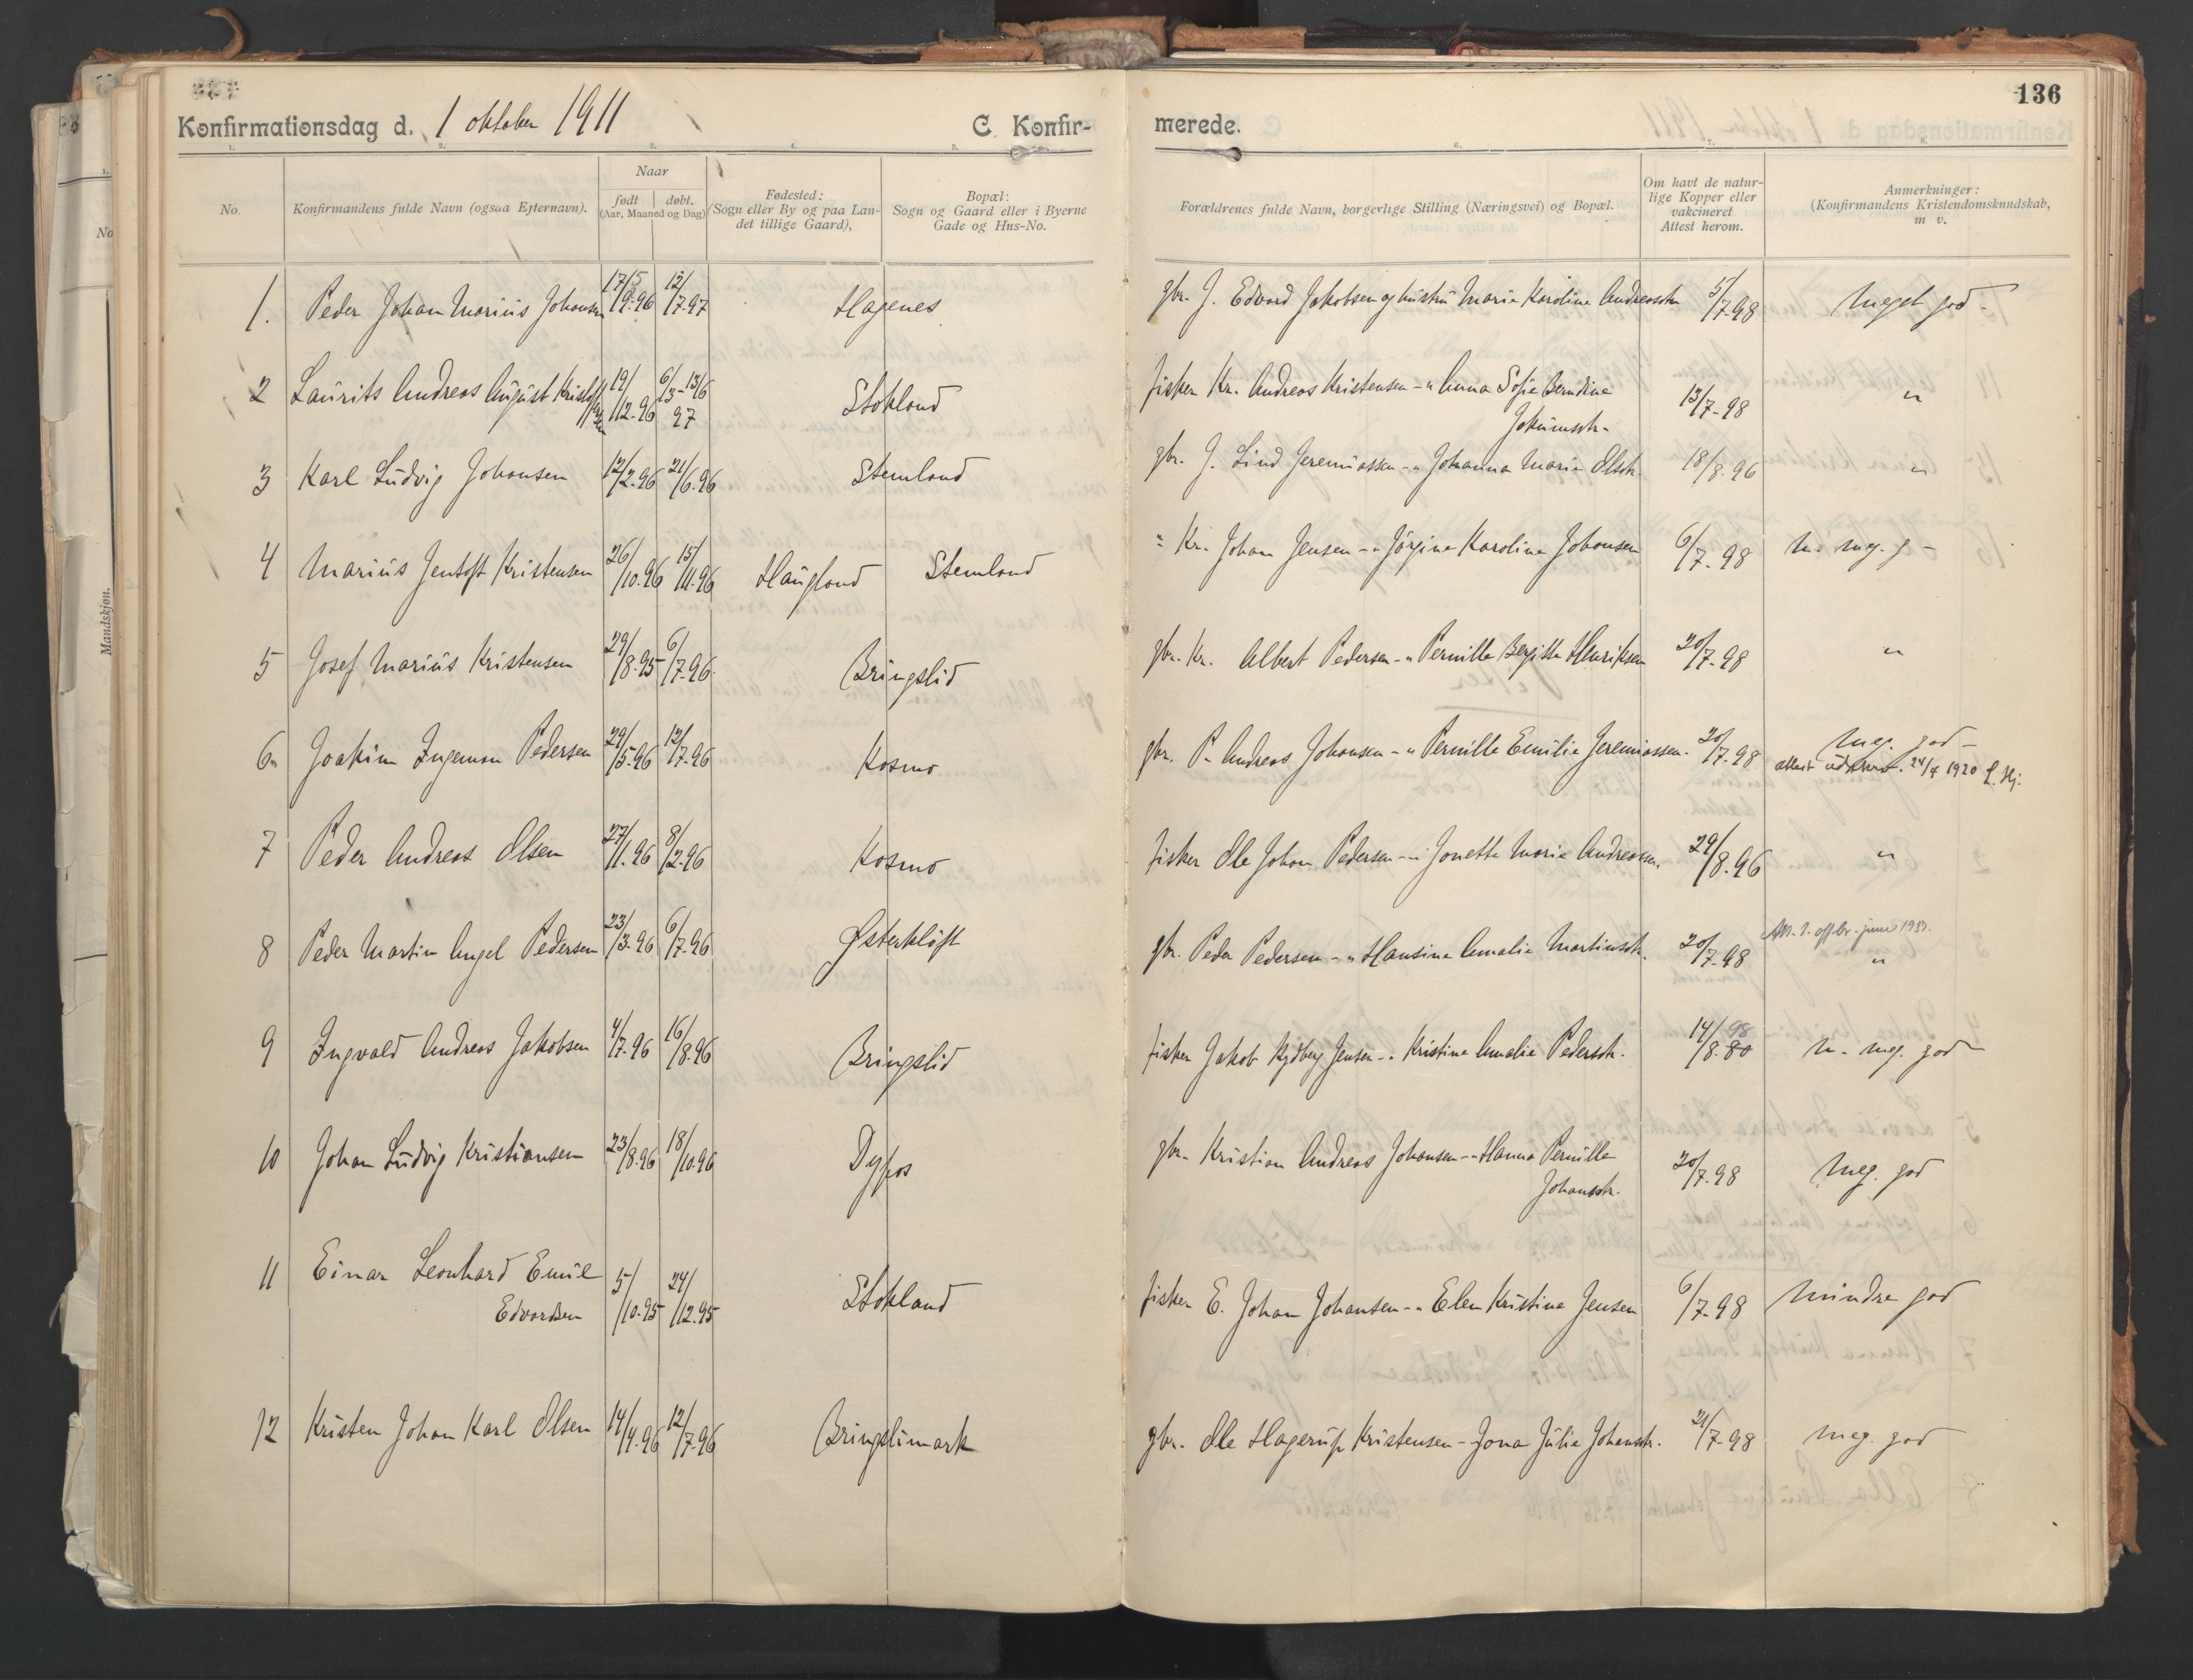 136
Konfirmationsdag d. 1 oktober 1911
C. Konfirmerede.
1. 2. 3. 4. 5. 6. 7. 8.
No.
Konfirmandens fulde Navn (ogsaa Efternavn).
Naar
født | døbt.
(Aar, Maaned og Dag)
Fødested:
(Sogn eller By og paa Lan-
det tillige Gaard),
Bopæl:
Sogn og Gaard eller i Byerne
Gade og Hus-No.
Forældrenes fulde Navn, borgerlige Stilling (Næringsvei) og Bopæl.
Om havt de natur-
lige Kopper eller
vakcineret
Attest herom.
Anmerkninger:
(Konfirmandens Kristendomskundskab,
m v.
Mandskjøn.
No
1. Peder Johan Marius Johansen 17/5 96 12/7-97 Hagenes gbr. J. Edvard Jakobsen og hustru Marie Karoline Andreasdtr 5/7-98 Meget god -
2 Laurits Andreas August Kristensen 19/12-96 6/3-13/6 97 Stokland fisker Kr. Andreas Kristensen -" Anna Sofie Berntine Jokumsdtr- 13/7-98 "
3 Karl Ludvig Johansen 12/2-96 21/6-96 Stemland gbr. J. Lind Jeremiassen -" Johanna Marie Olsdtr. 18/8-96 "
4 Marius Jentoft Kristensen 26/10-96 15/11-96 Haugland Stemland " Kr. Johan Jensen -" Jørgine Karoline Johansen 6/7-98 n. meg. g -
5 Josef Marius Kristensen 29/8-95 6/7-96 Bringslid gbr. Kr. Albert Pedersen -" Pernille Bergitte Henriksen 20/7-98 "
6. Joakim Ingeman Pedersen 29/5-96 12/7-96 Kosmo gbr. P. Andreas Johansen -" Pernille Emilie Jeremiassen. 20/7-98 Meg. god -
attest udskrevet. 24/4 1920 L. Hj.
7 Peder Andreas Olsen 27/11-96 8/2-96 Kosmo fisker Ole Johan Pedersen -" Jonette Marie Andreassen. 29/8-96 "
8 Peder Martin Angel Pedersen 23/3-96 6/7-96 Østerkløft gbr. Peder Pedersen -" Hansine Amalie Martinsdtr. 20/7-98 "
9 Ingvald Andreas Jakobsen 4/7-96 16/8-96 Bringslid fisker Jakob Rydberg Jensen -" Kristine Amalie Pedersdtr. 14/8-80 98 n. meg. god
10 Johan Ludvig Kristiansen 23/8-96 18/10-96 Dyfos gbr. Kristian Andreas Johansen -" Hanna Pernille Johansdtr. 20/7-98 Meg. god
11 Einar Leonhard Emil Edvardsen 5/10-95 24/12-95 Stokland fisker E. Johan Johansen -" Elen Kristine Jensen 6/7-98 Mindre god
12 Kristen Johan Karl Olsen 14/4-96 12/7-96 Bringslimark gbr. Ole Hagerup Kristensen - Jona Julie Johansdtr. 21/7-98 Meg. god